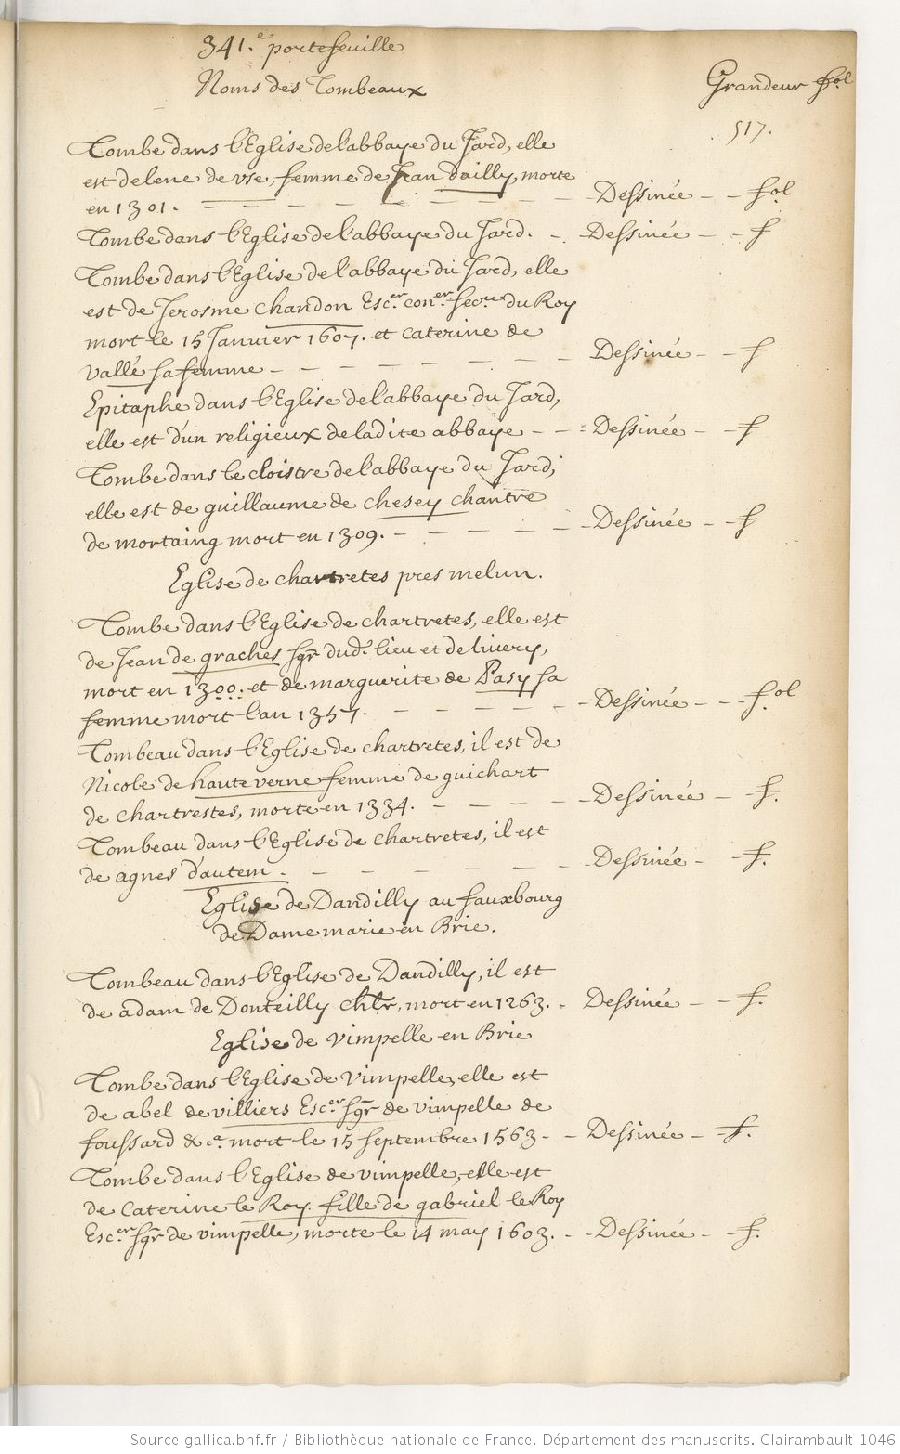 341.e portefeuille
Noms des Tombeaux
Grandeur fol
517.
Tombe dans l'Eglise de l'abbaye du Jard, elle
est delene de vse. femme de Jean dailly, morte
en 1301. Dessinée fol
Tombe dans l'Eglise de l'abbaye du Jard. Dessinée f
Tombe dans l'Eglise de l'abbaye du Jard, elle
est de Jerosme chandon Esc.er con.er Secre du Roy
mort le 15 Janvier 1607. et Caterine de
vallé sa femme Dessinée f
Epitaphe dans l'Eglise de l'abbaye du Jard,
elle est d'un religieux de ladite abbaye Dessinée f
Tombe dans le cloistre de l'abbaye du Jard,
elle est de guillaume de chesey chantre
de mortaing mort en 1309. Dessinée f
Eglise de chartretes pres melun.
Tombe dans l'Eglise de chartretes, elle est
de Jean de graches sgr dud. lieu et de livery,
mort en 1300. et de marguerite de Pasy sa
femme mort l'an 1357 Dessinée fol
Tombeau dans l'Eglise de chartretes, il est de
Nicole de hauteverne femme de guichart
de chartrestes, morte en 1334. Dessinée f.
Tombeau dans l'Eglise de chartretes, il est
de agnes d'autem. Dessinée f.
Eglise de Dandilly au fauxbourg
de Dame marie en Brie.
Tombeau dans l'Eglise de Dandilly, il est
de adam de Donteilly chlr, mort en 1263. Dessinée f.
Eglise de vimpelle en Brie
Tombe dans l'Eglise de vimpelle, elle est
de abel de villiers Esc.er sgr de vimpelle de
foussard &ca mort le 15 septembre 1563. Dessinée f.
Tombe dans l'Eglise de vimpelle, elle est
de Caterine le Roy fille de gabriel le Roy
Esc.er sgr de vimpelle, morte le 14 may 1603. Dessinée f.
Source gallica.bnf.fr / Bibliothèque nationale de France. Département des manuscrits. Clairambault 1046